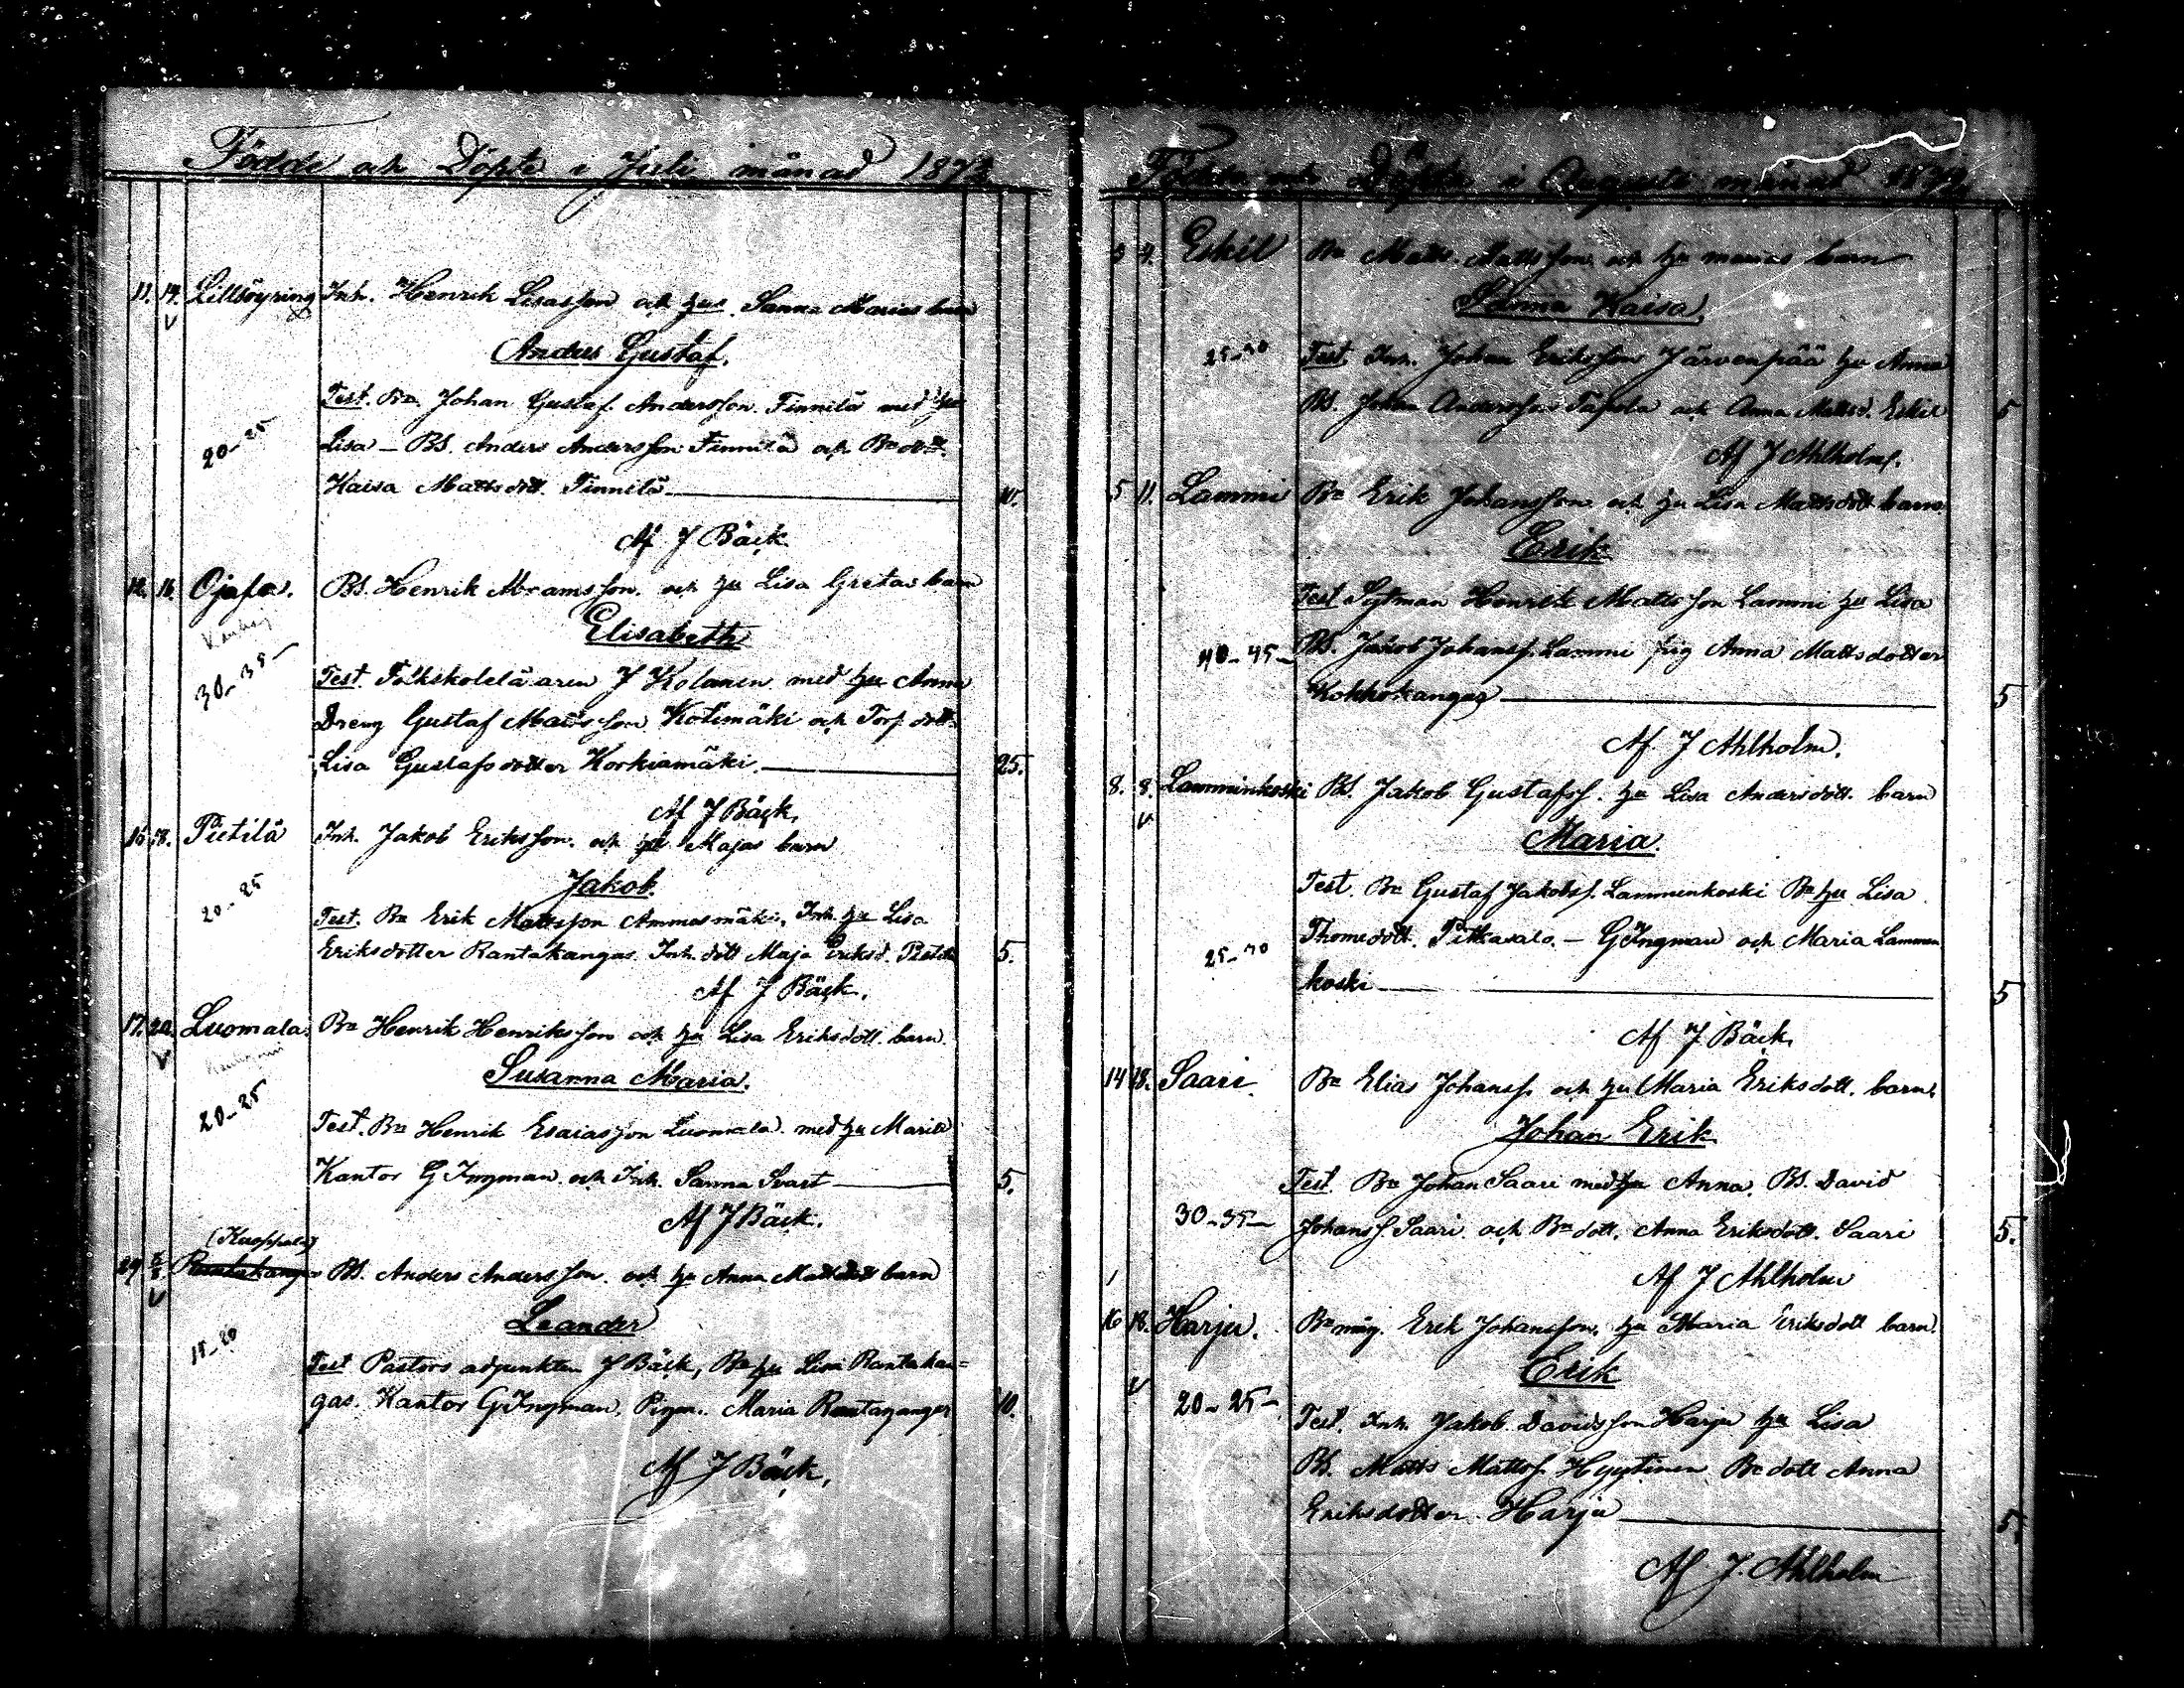 Födde och Döpte i Juli månad 1873
11. 14. Lillsöyring Inh. Henrik Lisasson och hus. Sanna Marias barn
Andus Gustaf.
Test. Bn. Johan Gustaf Andersson Finnilä med hu
20-25 Lisa - BS. Anders Andersson Finnilä och Bndott.
Kaisa Mattsdott. Finnilä 10.
Af J Bäck
12. 16. Ojala. BS. Henrik Abramsson. och hu Lisa Gretas barn
Elisabeth
30-35 Test. Folkskoleläraren J Kolanen med hu Anna
Dreng Gustaf Mattsson Kotimäki och Torp. dott.
Lisa Gustafsdotter Korkiamäki. 25.
Af J Bäck.
15 18. Pietilä Inh. Jakob Eriksson. och hu Majas barn
Jakob.
20-25 Test. Bn Erik Mattsson Ammasmäki, Inh. hu Lisa
Eriksdotter Rantakangas Inh. dott Maja Eriksd. Pietilä 5.
Af J Bäck.
17. 20. Luomala. Bn Henrik Henriksson och hu Lisa Eriksdott. barn
Susanna Maria.
20-25 Test. Bn Henrik Esaiasson Luomala med hu Maria
Kantor G Ingman och Inh. Sanna Svart 5.
Af J Bäck.
(Kuoppala)
29 Rantakangas BS. Anders Andersson. och hu Anna Mattsdott barn
Leander
15-20 Test Pastors adjunkten J Bäck, Bn hu Lisa Rantakan=
gas. Kantor G Ingman, Pigan. Maria Rantaganger 10.
Af J Bäck,
Födde och Döpte i Augusti månad 1873.
3 4. Eskil Bn Matts Mattsson och hu Marias barn
Kaisa.
25-30 Test. Inh. Johan Eriksson Järvenpää hu Anna
BS. Johan Andersson Tapola och Anna Mattsd. Eskil 5
Af J Ahlholm.
5 11. Lammi Bn Erik Johansson och hu Lisa Mattsdott barn
Erik
Test Sytman Henrik Mattsson Lammi hu Lisa
40-45- BS. Jakob Johanss. Lammi pig Anna Mattsdotter
Kokkokangas 5
Af. J Ahlholm.
8. 8. Lamminkoski BS. Jakob Gustafss. hu Lisa Andersdott. barn
Maria.
Test. Bn Gustaf Jakobss. Lamminkoski Bn hu Lisa
25-30 Thomedott. Pitkasalo. - G Ingman och Maria Lammin
koski 5
Af J Bäck.
14 18. Saari. Bn Elias Johanss. och hu Maria Eriksdott. barn.
Johan Erik
Test. Bn Johan Saari med hu Anna. BS. David
30-35- Johanss. Saari och Bn dott. Anna Eriksdott. Saari 5.
Af J Ahlholm
16 18. Harju. Bn måg. Erik Johansson, hu Maria Eriksdott barn.
Erik
20-25- Test. Inh. Jakob Davidsson Harju hu Lisa
BS. Matts Mattss. Hyytinen Bn dott Anna
Eriksdotter Harju 5.
Af J. Ahlholm